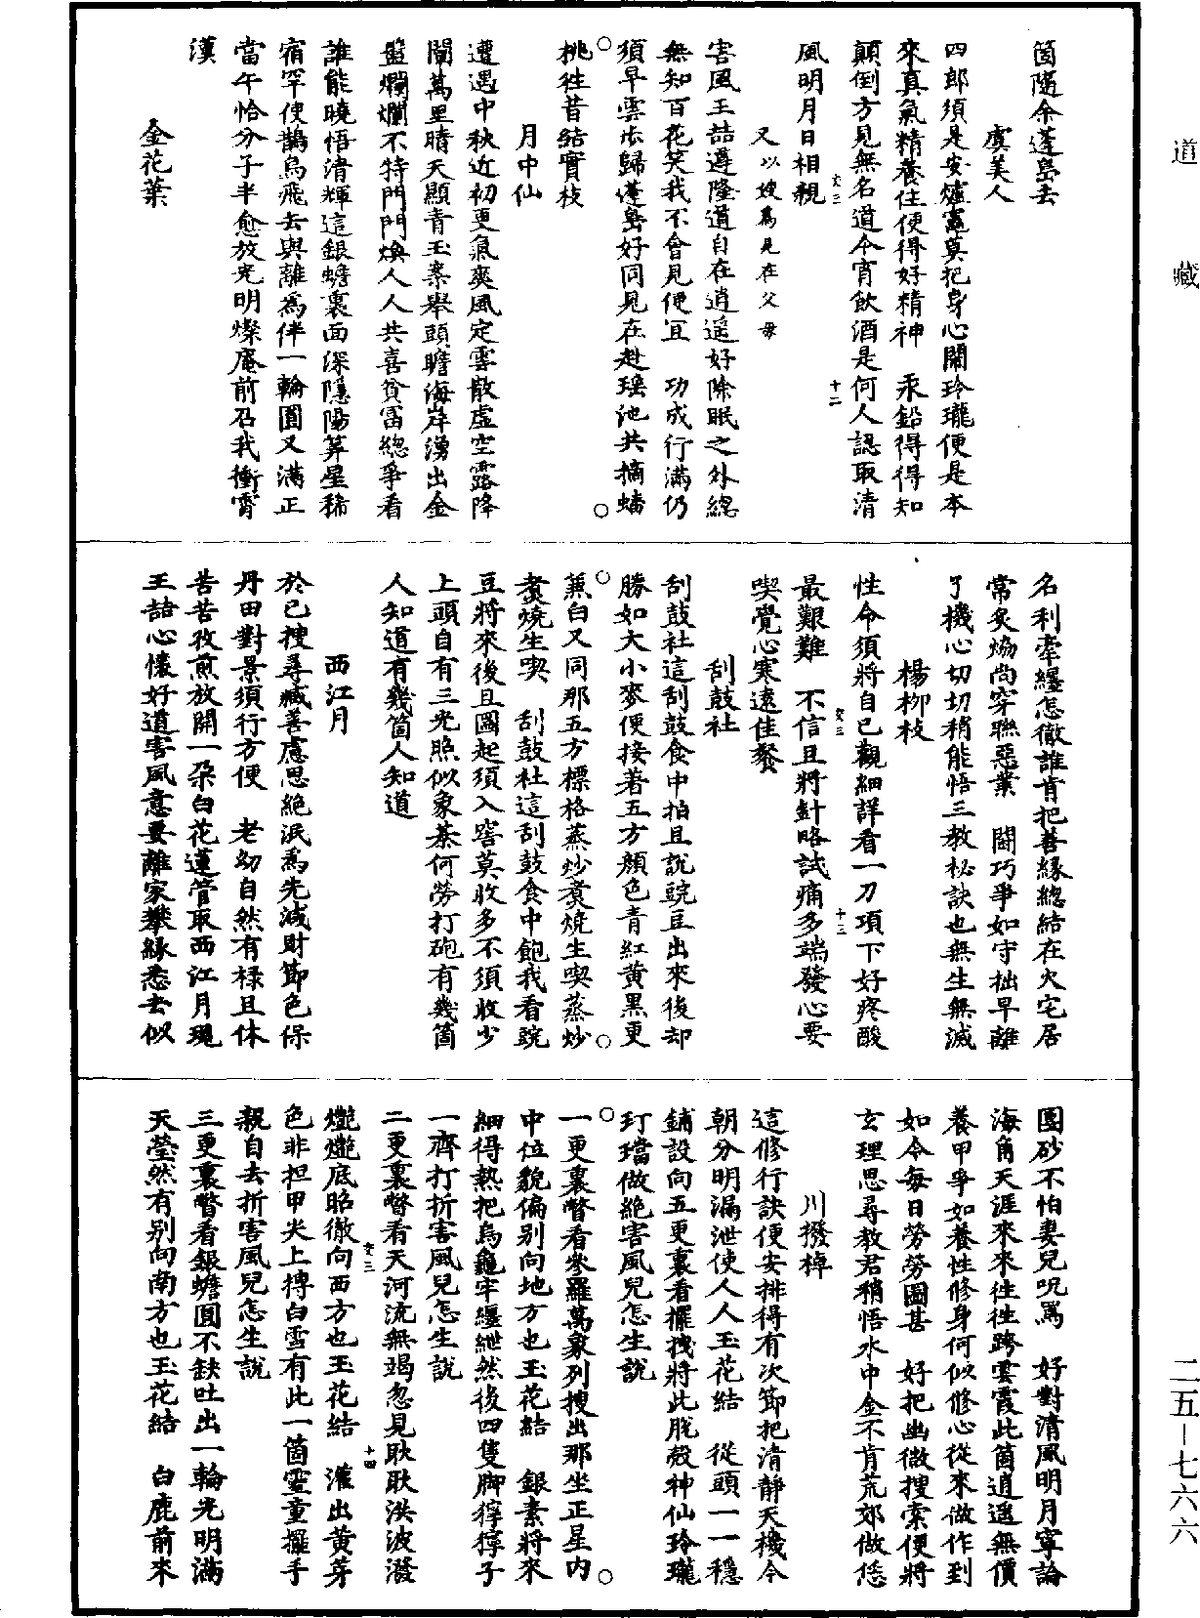 道藏
箇隨余蓬島去
虞美人
四郎須是安爐竈莫把身心鬧玲瓏便是本
來真氣精養住便得好精神　汞鉛得得知
顛倒方見無名道今宵飲酒是何人認取清
風明月日相親
交三
十二
又以嫂為見在父母
害風王喆遵隆道自在逍遙好除眠之外總
無知百花笑我不會見便宜　功成行滿仍
須早雲步歸蓬島好同見在赴瑶池共摘蟠
桃往昔結實枝
月中仙
遭遇中秋近初更氣爽風定雲散虛空露降
闃萬里晴天顯青玉案舉頭瞻海岸湧出金
盤爛爛不特門門煥人人共喜貧富總爭看
誰能曉悟清輝這銀蟾裏面深隱陽筭星稀
宿罕使鵲烏飛去與離為伴一輪圓又滿正
當午恰分子半愈放光明燦庵前召我衝霄
漢
金花葉
名利牽纏怎徹誰肯把善緣總結在火宅居
常炙煿尚穿聯惡業　鬪巧爭如守拙早離
了機心切切稍能悟三教秘訣也無生無滅
楊柳枝
性命須將自己觀細詳看一刀項下好疼酸
最艱難　不信且將針略試痛多端發心要
喫覺心寒遠佳餐
交三
十三
刮鼓社
刮鼓社這刮鼓食中拍且說豌豆出來後却
勝如大小麥便接著五方顏色青紅黄黑更
兼白又同那五方標格蒸炒煑燒生喫蒸炒
煑燒生喫　刮鼓社這刮鼓食中飽我看豌
豆將來後且圖起須入窖莫收多不須收少
上頭自有三光照似象棊何勞打砲有幾箇
人知道有幾箇人知道
西江月
於己搜尋臧善慮思絶泯為先減財節色保
丹田對景須行方便　老幼自然有祿且休
苦苦孜煎放開一朶白花蓮管取西江月現
王喆心懷好道害風意要離家攀緣悉去似
團砂不怕妻兒呪罵　好對清風明月寧論
海角天涯來來往往跨雲霞此箇逍遥無價
養甲爭如養性修身何似修心從來做作到
如今每日勞勞圖甚　好把幽微搜索便將
玄理思尋教君稍悟水中金不肯荒郊做恁
川撥棹
這修行訣便安排得有次節把清靜天機今
朝分明漏泄使人人玉花結　從頭一一穩
鋪設向五更裏看擺拽將此脫殼神仙玲瓏
玎璫做絶害風兒怎生說
一更裏瞥看參羅萬象列搜出那坐正星内
中位貌偏别向地方也玉花結　銀素將來
細得熱把烏龜牢纏紲然後四隻脚獰獰子
一齊打折害風兒怎生說
二更裏瞥看天河流無竭忽見耿耿洪波潑
灔灔底昭徹向西方也玉花結　灌出黄芽
色非担甲尖上摶白雪有此一箇靈童擺手
親自去折害風兒怎生說
交三
十四
三更裏瞥看銀蟾圓不缺吐出一輪光明滿
天瑩然有别向南方也玉花結　白鹿前來
二五—七六六